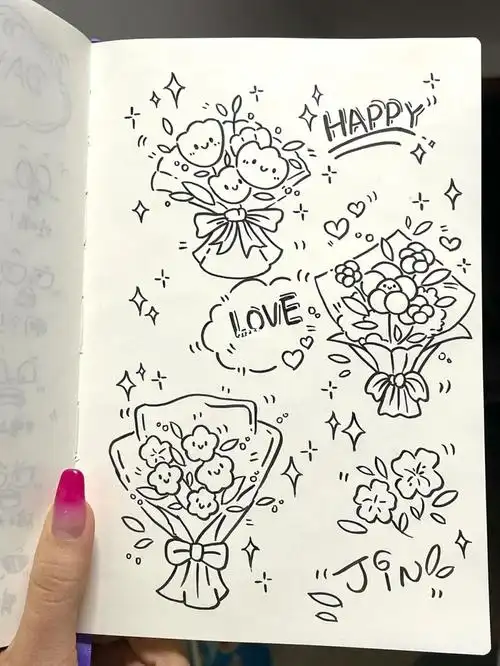 HAPPY
LOVE
JiN